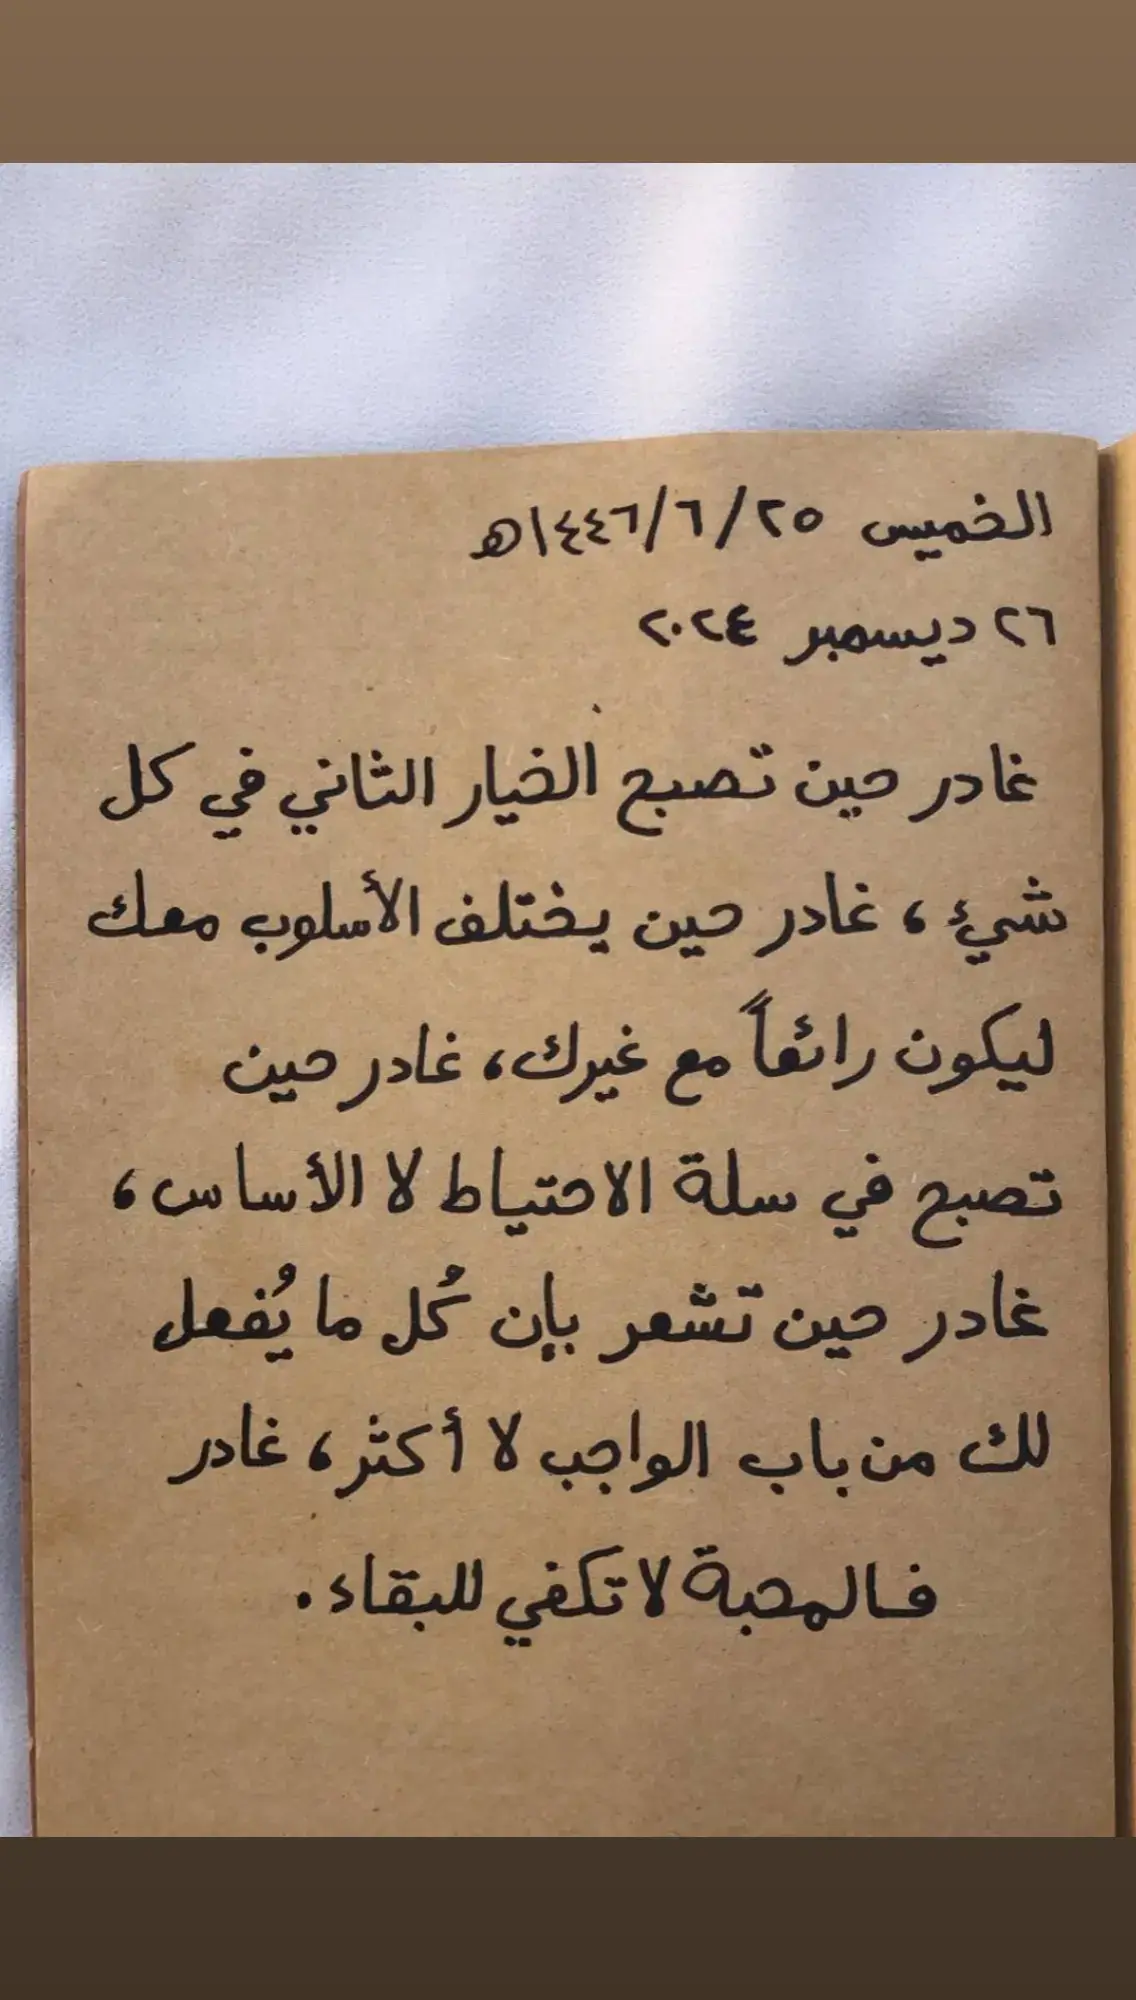 الخميس ٢٥/٦/١٤٤٦هـ
٢٦ ديسمبر ٢٠٢٤
غادر حين تصبح الخيار الثاني في كل
شيء ، غادر حين يختلف الأسلوب معك
ليكون رائعاً مع غيرك، غادر حين
تصبح في سلة الاحتياط لا الأساس ،
غادر حين تشعر بإن كُل ما يُفعل
لك من باب الواجب لا أكثر ، غادر
فالمحبة لا تكفي للبقاء .